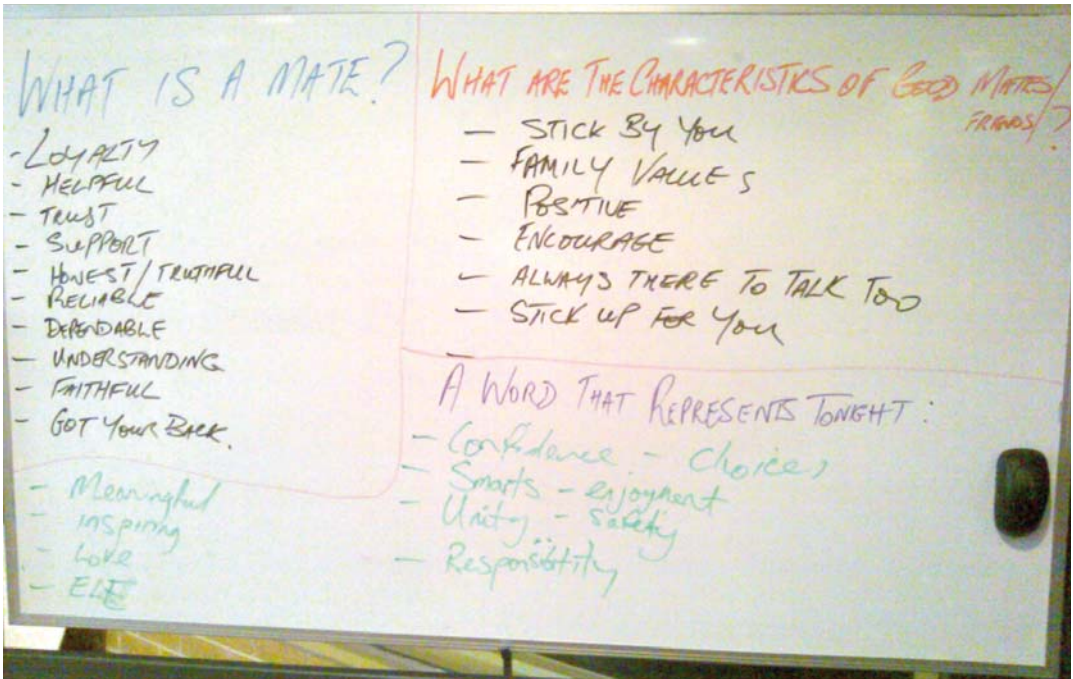 WHAT IS A MATE?
- LOYALTY
- HELPFUL
- TRUST
- SUPPORT
- HONEST/TRUTHFUL
- RELIABLE
- DEPENDABLE
- UNDERSTANDING
- FAITHFUL
- GOT YOUR BACK.
WHAT ARE THE CHARACTERISTICS OF GOOD MATES/
FRIENDS/?
- STICK BY YOU
- FAMILY VALUES
- POSITIVE
- ENCOURAGE
- ALWAYS THERE TO TALK TOO
- STICK UP FOR YOU
-
A WORD THAT REPRESENTS TONIGHT:
- Confidence - Choices
- Smarts - enjoyment
- Unity - Safety
- Responsibility
- Meaningful
- inspiring
- Love
- ELE